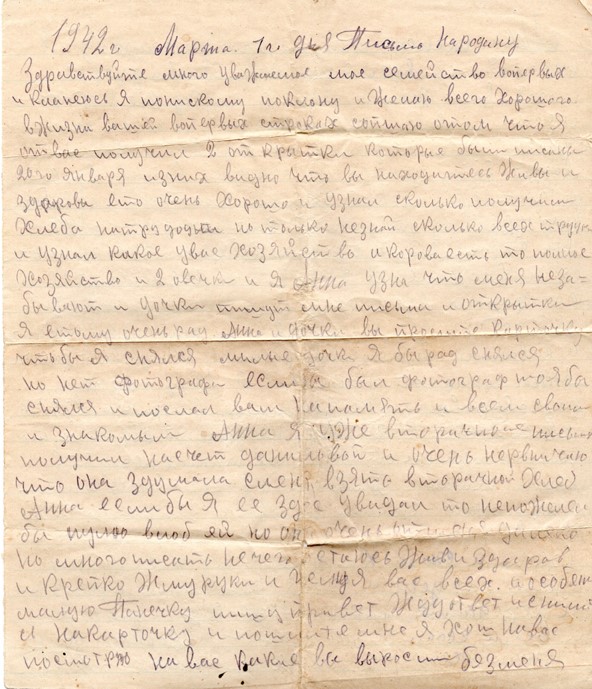 1942 г Марта. 1 го дня Письмо народину
Здравствуйте много уважаемое мое семейство вопервых
и кланеюсь я понискому поклону и желаю всего хорошого
в жизни вашей вопервых строках сопщаю отом что я
отвас получил 2 открытки которые были писаны
20го января изних видно что вы находитесь живы и
здоровы ето очень хорошо и узнал сколько получили
хлеба натрудодни но только незнай сколько всех
и узнал какое увас хозяйство и корова есть то
хозяйство и 2 овечки и я Анна узнал что меня неза-
бывают и дочки пишут мне письма и открытки
я етому очень рад Анна и дочки вы просите карточку
чтобы я снялся милые дочки я бы рад снялся
но нет фотографа если бы был фотограф то я бы
снялся и послал вам напамять и всем
и знакомым Анна я уже вторичное письмо
получил насчет и очень нервничаю
что она здумала взять вторичной хлеб
Анна если бы я ее здес увидал то непожелел
бы пулю влоб ей но очень
но много писать нечего остаюсь жив и здаров
и крепко жму руки и целуя вас всех и особен
малую Панечку привет жду ответ
и накарточку и мне я хоть навас
посмотрю на вас какие вы выросли безменя